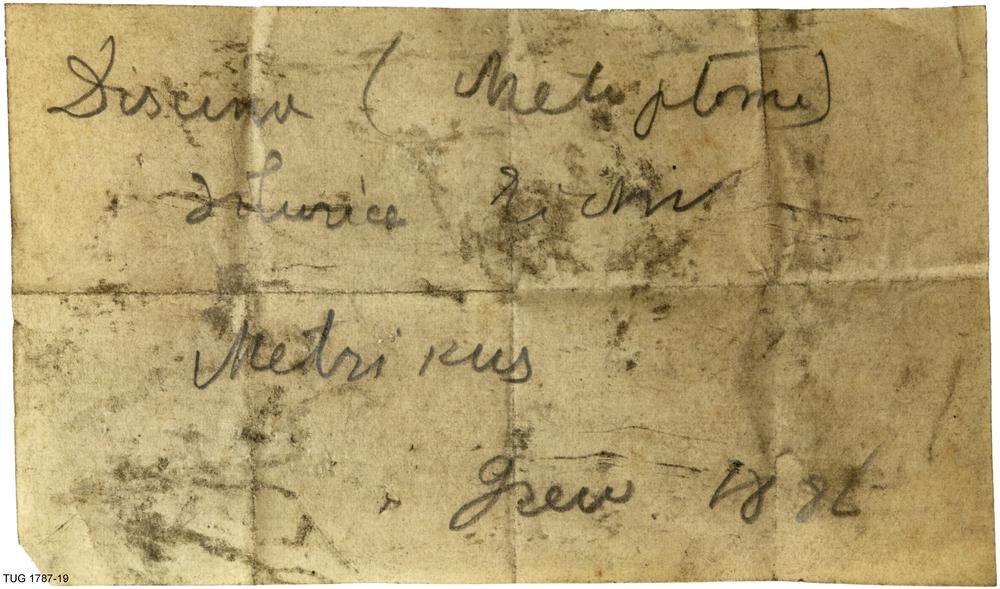 Discina (Metoptoma)
silurica Eichw
Metzikus
Grew 1886
TUG 1787-19